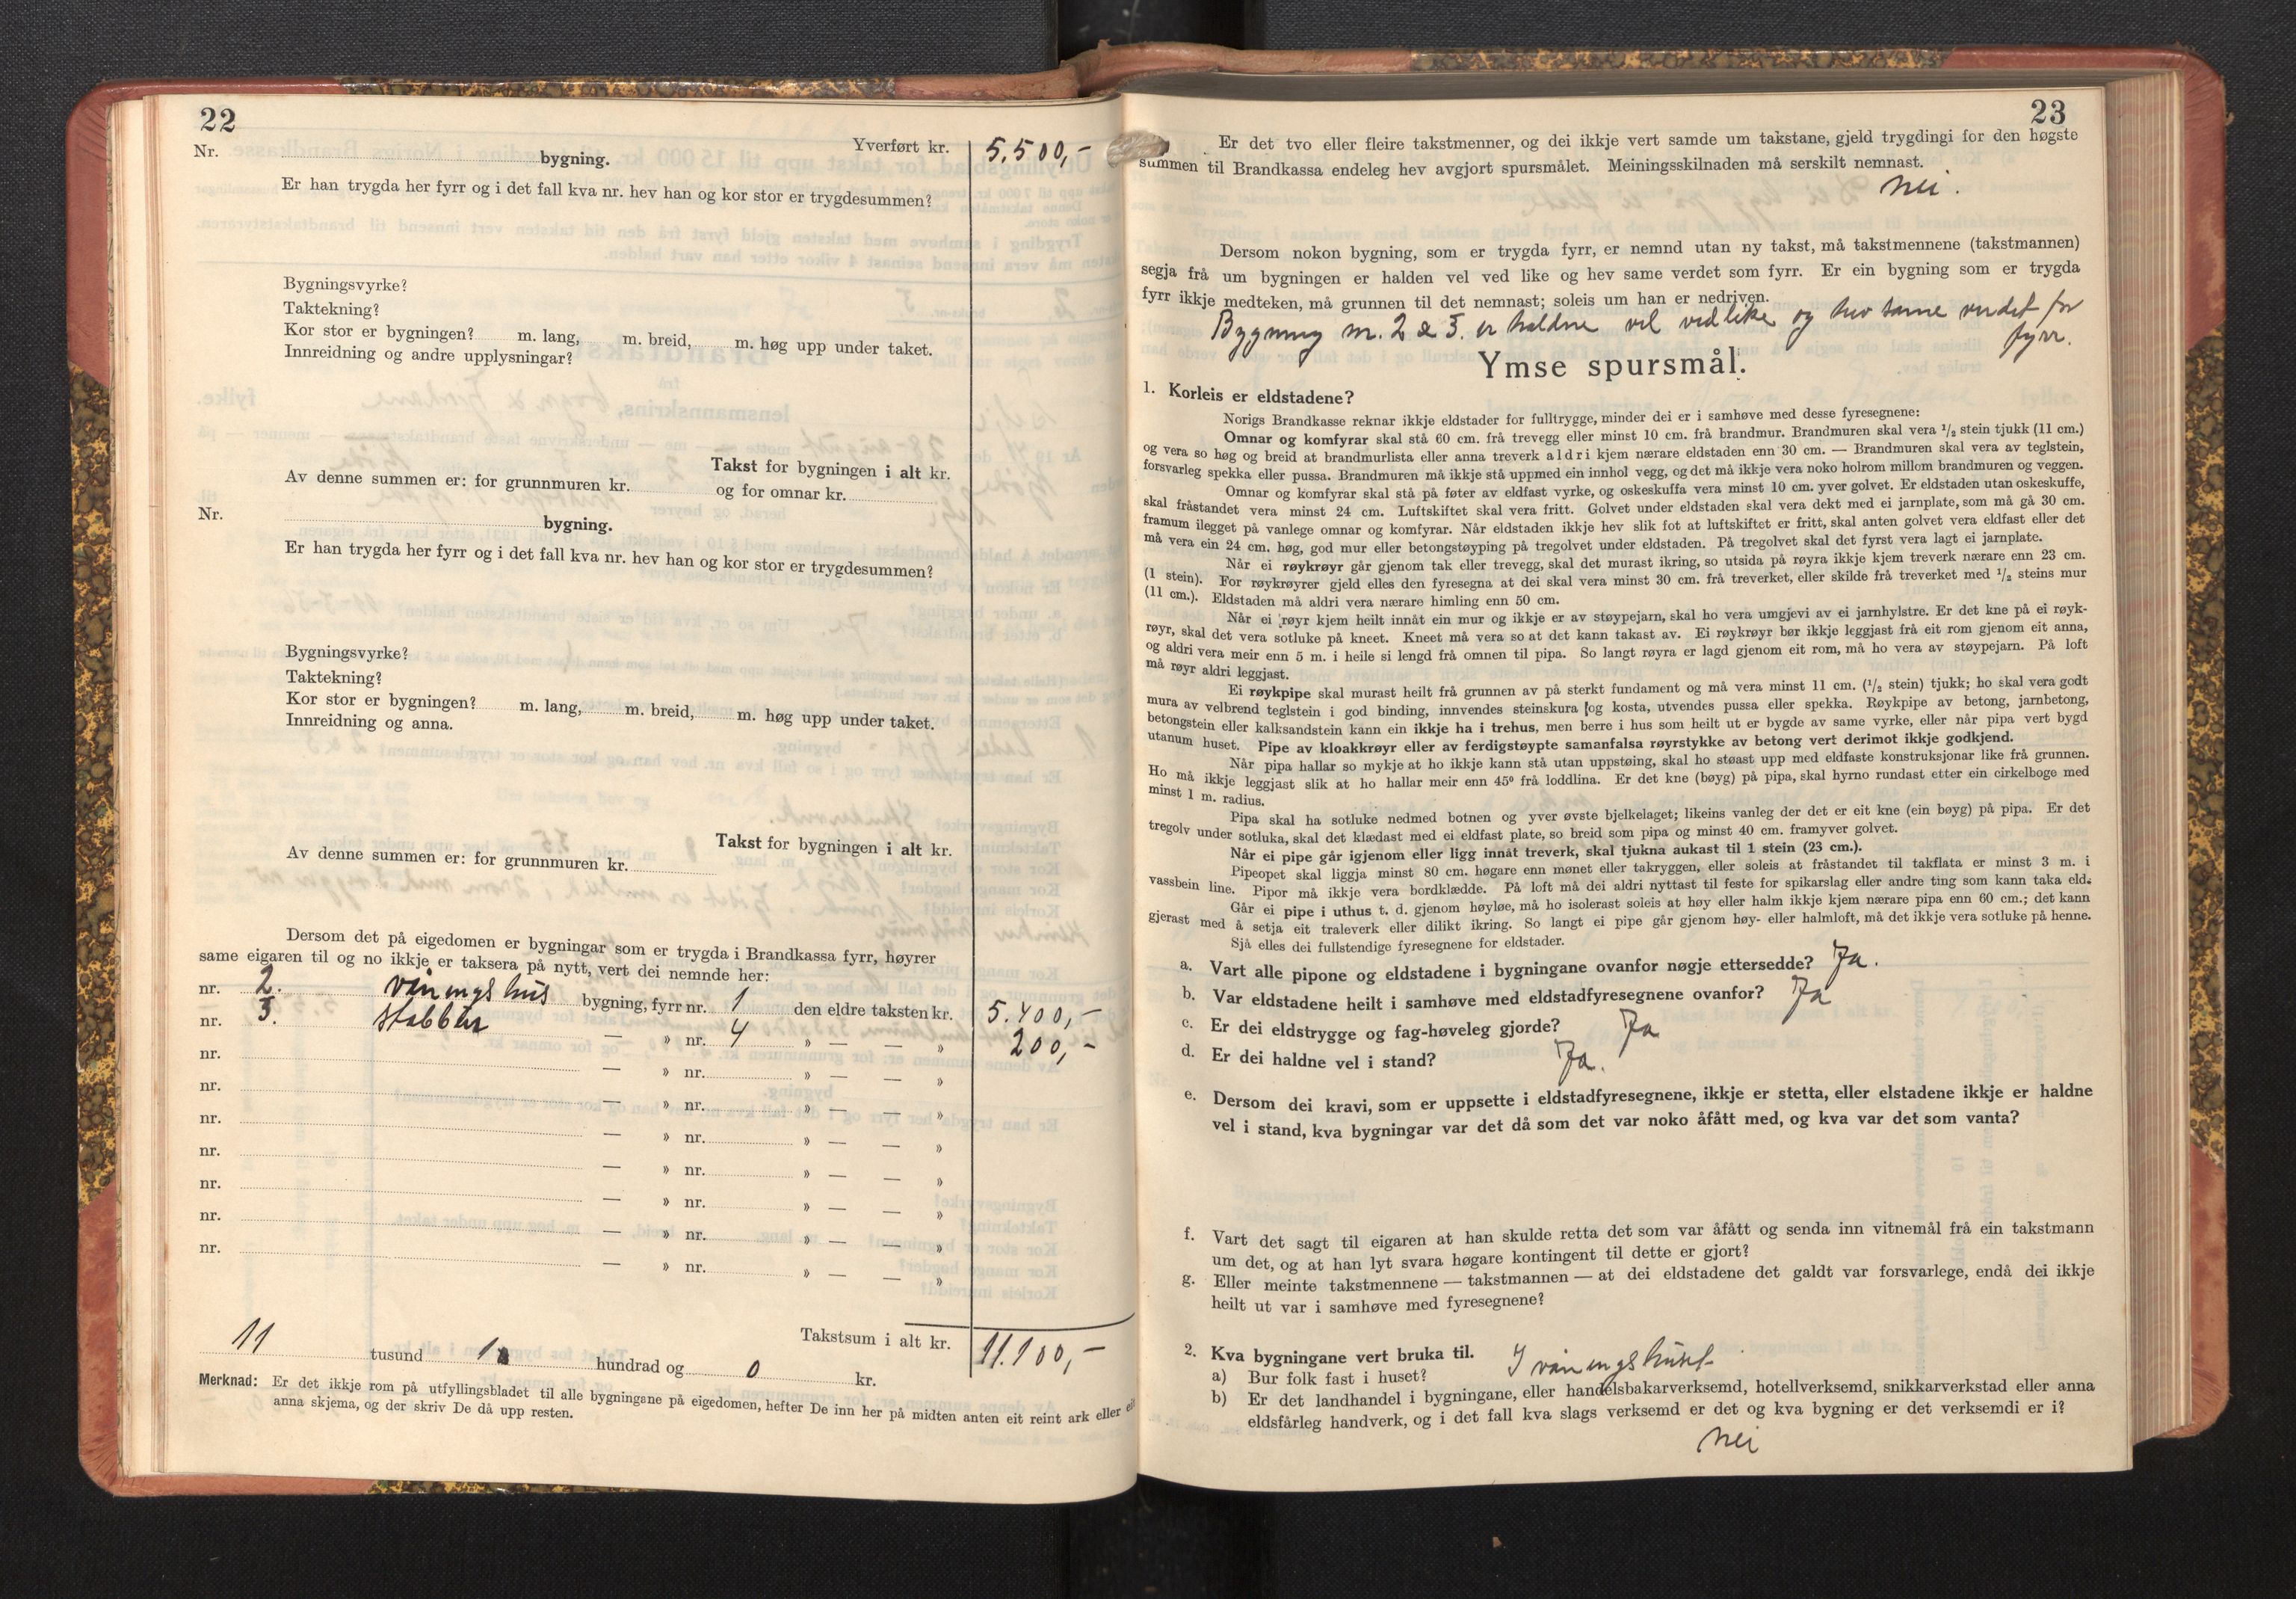 22
Yverført kr. 5.500,-
Nr. bygning.
Er han trygda her fyrr og i det fall kva nr. hev han og kor stor er trygdesummen?
Bygningsvyrke?
Taktekning?
Kor stor er bygningen? m. lang, m. breid, m. høg upp under taket.
Innreidning og andre upplysningar?
Takst for bygningen i alt kr.
Av denne summen er: for grunnmuren kr. og for omnar kr.
Nr. bygning.
Er han trygda her fyrr og i det fall kva nr. hev han og kor stor er trygdesummen?
Bygningsvyrke?
Taktekning?
Kor stor er bygningen? m. lang, m. breid, m. høg upp under taket.
Innreidning og anna.
Takst for bygningen i alt kr.
Av denne summen er: for grunnmuren kr.
Dersom det på eigedomen er bygningar som er trygda i Brandkassa fyrr, høyrer
same eigaren til og no ikkje er taksera på nytt, vert dei nemnde her:
nr. 2. våningshus bygning, fyrr nr. 1 den eldre taksten kr. 5.400,-
nr. 3. stabbur — » nr. 4 » — — » 200,-
nr. — » nr. » — — »
nr. — » nr. » — — »
nr. — » nr. » — — »
nr. — » nr. » — — »
nr. — » nr. » — — »
nr. — » nr. » — — »
nr. — » nr. » — — »
Takstsum i alt kr. 11.100,-
11 tusund 1 hundrad og 0 kr.
Merknad: Er det ikkje rom på utfyllingsbladet til alle bygningane på eigedomen, hefter De inn her på midten anten eit reint ark eller
anna skjema, og der skriv De då upp resten.
23
Er det tvo eller fleire takstmenner, og dei ikkje vert samde um takstane, gjeld trygdingi for den høgste
summen til Brandkassa endeleg hev avgjort spursmålet. Meiningsskilnaden må serskilt nemnast.
nei.
Dersom nokon bygning, som er trygda fyrr, er nemnd utan ny takst, må takstmennene (takstmannen)
segja frå um bygningen er halden vel ved like og hev same verdet som fyrr. Er ein bygning som er trygda
fyrr ikkje medteken, må grunnen til det nemnast; soleis um han er nedriven.
Bygning nr. 2 & 3. er haldne vel vedlike og hev same verdet for
fyrr.
Ymse spursmål.
1. Korleis er eldstadene?
Norigs Brandkasse reknar ikkje eldstader for fulltrygge, minder dei er i samhøve med desse fyresegnene:
Omnar og komfyrar skal stå 60 cm. frå trevegg eller minst 10 cm. frå brandmur. Brandmuren skal vera ½ stein tjukk (11 cm.)
og vera so høg og breid at brandmurlista eller anna treverk aldri kjem nærare eldstaden enn 30 cm. — Brandmuren skal vera av teglstein,
forsvarleg spekka eller pussa. Brandmuren må ikkje stå uppmed ein innhol vegg, og det må ikkje vera noko holrom millom brandmuren og veggen.
Omnar og komfyrar skal stå på føter av eldfast vyrke, og oskeskuffa vera minst 10 cm. yver golvet. Er eldstaden utan oskeskuffe,
skal fråstandet vera minst 24 cm. Luftskiftet skal vera fritt. Golvet under eldstaden skal vera dekt med ei jarnplate, som må gå 30 cm.
framum ilegget på vanlege omnar og komfyrar. Når eldstaden ikkje hev slik fot at luftskiftet er fritt, skal anten golvet vera eldfast eller det
må vera ein 24 cm. høg, god mur eller betongstøyping på tregolvet under eldstaden. På tregolvet skal det fyrst vera lagt ei jarnplate.
Når ei røykrøyr går gjenom tak eller trevegg, skal det murast ikring, so utsida på røyra ikkje kjem treverk nærare enn 23 cm.
(1 stein). For røykrøyrer gjeld elles den fyresegna at dei skal vera minst 30 cm. frå treverket, eller skilde frå treverket med ½ steins mur
(11 cm.). Eldstaden må aldri vera nærare himling enn 50 cm.
Når ei røyr kjem heilt innåt ein mur og ikkje er av støypejarn, skal ho vera umgjevi av ei jarnhylstre. Er det kne på ei røyk-
røyr, skal det vera sotluke på kneet. Kneet må vera so at det kann takast av. Ei røykrøyr bør ikkje leggjast frå eit rom gjenom eit anna,
og aldri vera meir enn 5 m. i heile si lengd frå omnen til pipa. So langt røyra er lagd gjenom eit rom, må ho vera av støypejarn. På loft
må røyr aldri leggjast.
Ei røykpipe skal murast heilt frå grunnen av på sterkt fundament og må vera minst 11 cm. (½ stein) tjukk; ho skal vera godt
mura av velbrend teglstein i god binding, innvendes steinskura og kosta, utvendes pussa eller spekka. Røykpipe av betong, jarnbetong,
betongstein eller kalksandstein kann ein ikkje ha i trehus, men berre i hus som heilt ut er bygde av same vyrke, eller når pipa vert bygd
utanum huset. Pipe av kloakkrøyr eller av ferdigstøypte samanfalsa røyrstykke av betong vert derimot ikkje godkjend.
Når pipa hallar so mykje at ho ikkje kann stå utan uppstøing, skal ho støast upp med eldfaste konstruksjonar like frå grunnen.
Ho må ikkje leggjast slik at ho hallar meir enn 45º frå loddlina. Er det kne (bøyg) på pipa, skal hyrno rundast etter ein cirkelboge med
minst 1 m. radius.
Pipa skal ha sotluke nedmed botnen og yver øvste bjelkelaget; likeins vanleg der det er eit kne (ein bøyg) på pipa. Er det
tregolv under sotluka, skal det klædast med ei eldfast plate, so breid som pipa og minst 40 cm. framyver golvet.
Når ei pipe går igjenom eller ligg innåt treverk, skal tjukna aukast til 1 stein (23 cm.).
Pipeopet skal liggja minst 80 cm. høgare enn mønet eller takryggen, eller soleis at fråstandet til takflata er minst 3 m. i
vassbein line. Pipor må ikkje vera bordklædde. På loft må dei aldri nyttast til feste for spikarslag eller andre ting som kann taka eld.
Går ei pipe i uthus t. d. gjenom høyløe, må ho isolerast soleis at høy eller halm ikkje kjem nærare pipa enn 60 cm.; det kann
gjerast med å setja eit traleverk eller dilikt ikring. So langt ei pipe går gjenom høy- eller halmloft, må det ikkje vera sotluke på henne.
Sjå elles dei fullstendige fyresegnene for eldstader.
a. Vart alle pipone og eldstadene i bygningane ovanfor nøgje ettersedde? Ja.
b. Var eldstadene heilt i samhøve med eldstadfyresegnene ovanfor? Ja
c. Er dei eldstrygge og fag-høveleg gjorde? Ja
d. Er dei haldne vel i stand? Ja.
e. Dersom dei kravi, som er uppsette i eldstadfyresegnene, ikkje er stetta, eller elstadene ikkje er haldne
vel i stand, kva bygningar var det då som det var noko åfått med, og kva var det som vanta?
f. Vart det sagt til eigaren at han skulde retta det som var åfått og senda inn vitnemål frå ein takstmann
um det, og at han lyt svara høgare kontingent til dette er gjort?
g. Eller meinte takstmennene — takstmannen — at dei eldstadene det galdt var forsvarlege, endå dei ikkje
heilt ut var i samhøve med fyresegnene?
2. Kva bygningane vert bruka til.
a) Bur folk fast i huset? I våningshuset
b) Er det landhandel i bygningane, eller handelsbakarverksemd, hotellverksemd, snikkarverkstad eller anna
eldsfårleg handverk, og i det fall kva slags verksemd er det og kva bygning er det verksemdi er i?
nei